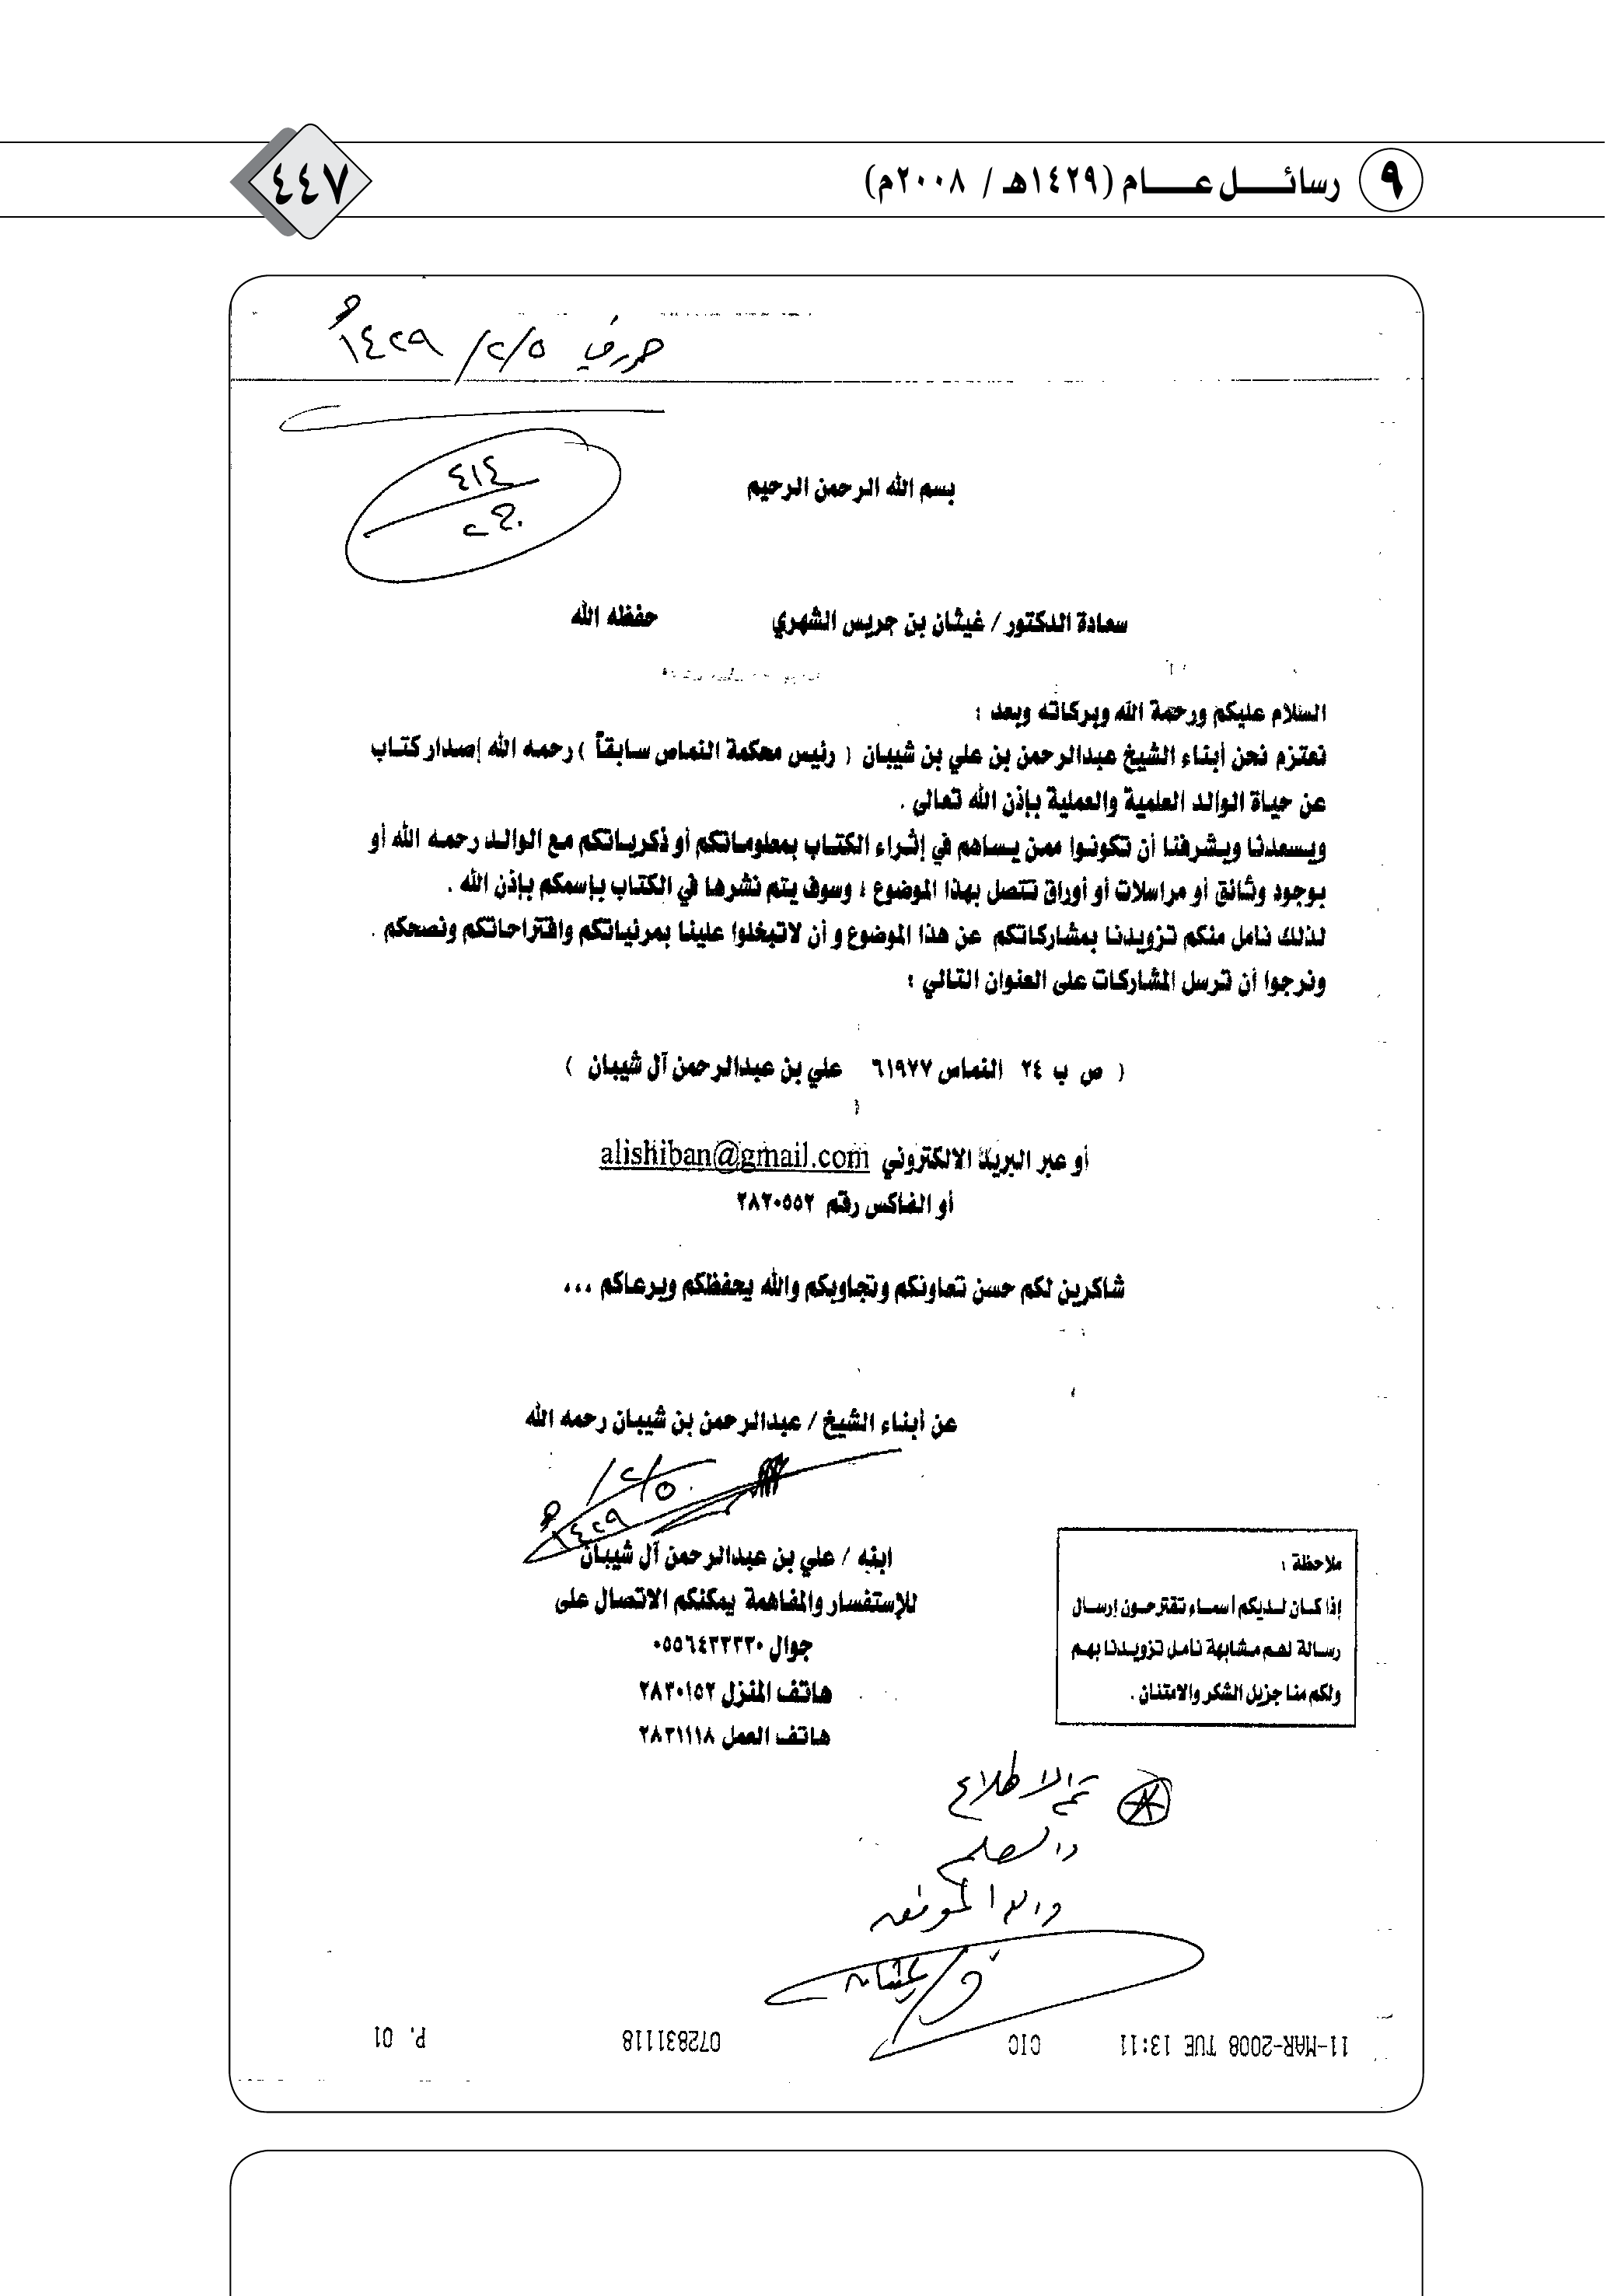 ٩ رسائل عام (١٤٢٩هـ / ٢٠٠٨م)
٤٤٧
حرر في ١٤٢٩/٢/٥هـ
٤١٤
بسم الله الرحمن الرحيم
سعادة الدكتور / غيثان بن جريس الشهري حفظه الله
السلام عليكم ورحمة الله وبركاته وبعد :
نعتزم نحن أبناء الشيخ عبدالرحمن بن علي بن شيبان ( رئيس محكمة النماص سابقاً ) رحمه الله إصدار كتاب
عن حياة الوالد العلمية والعملية بإذن الله تعالى .
ويسعدنا ويشرفنا أن تكونوا ممن يساهم في إثراء الكتاب بمعلوماتكم أو ذكرياتكم مع الوالد رحمه الله أو
بوجود وثائق أو مراسلات أو أوراق تتصل بهذا الموضوع ؛ وسوف يتم نشرها في الكتاب بإسمكم بإذن الله .
لذلك نامل منكم تزويدنا بمشاركاتكم عن هذا الموضوع و أن لاتبخلوا علينا بمرئياتكم واقتراحاتكم ونصحكم .
ونرجوا أن ترسل المشاركات على العنوان التالي :
( ص ب ٢٤ النماص ٦١٩٧٧ علي بن عبدالرحمن آل شيبان )
أو عبر البريد الالكتروني alishiban@gmail.com
أو الفاكس رقم ٢٨٢٠٥٥٢
شاكرين لكم حسن تعاونكم وتجاوبكم والله يحفظكم ويرعاكم ...
عن أبناء الشيخ / عبدالرحمن بن شيبان رحمه الله
٥/٢/١٤٢٩هـ
ابنه / علي بن عبدالرحمن آل شيبان
للإستفسار والمفاهمة يمكنكم الاتصال على
جوال ٠٥٥٦٤٣٣٣٣٠
هاتف المنزل ٢٨٣٠١٥٢
هاتف العمل ٢٨٣١١١٨
ملاحظة :
إذا كان لديكم أسماء تقترحون إرسال
رسالة لهم مشابهة نامل تزويدنا بهم
ولكم منا جزيل الشكر والامتنان .
تم الاطلاع
والعلم
والله الموفق
غيثان
11-MAR-2008 TUE 13:11 CIC 072831118 P. 01